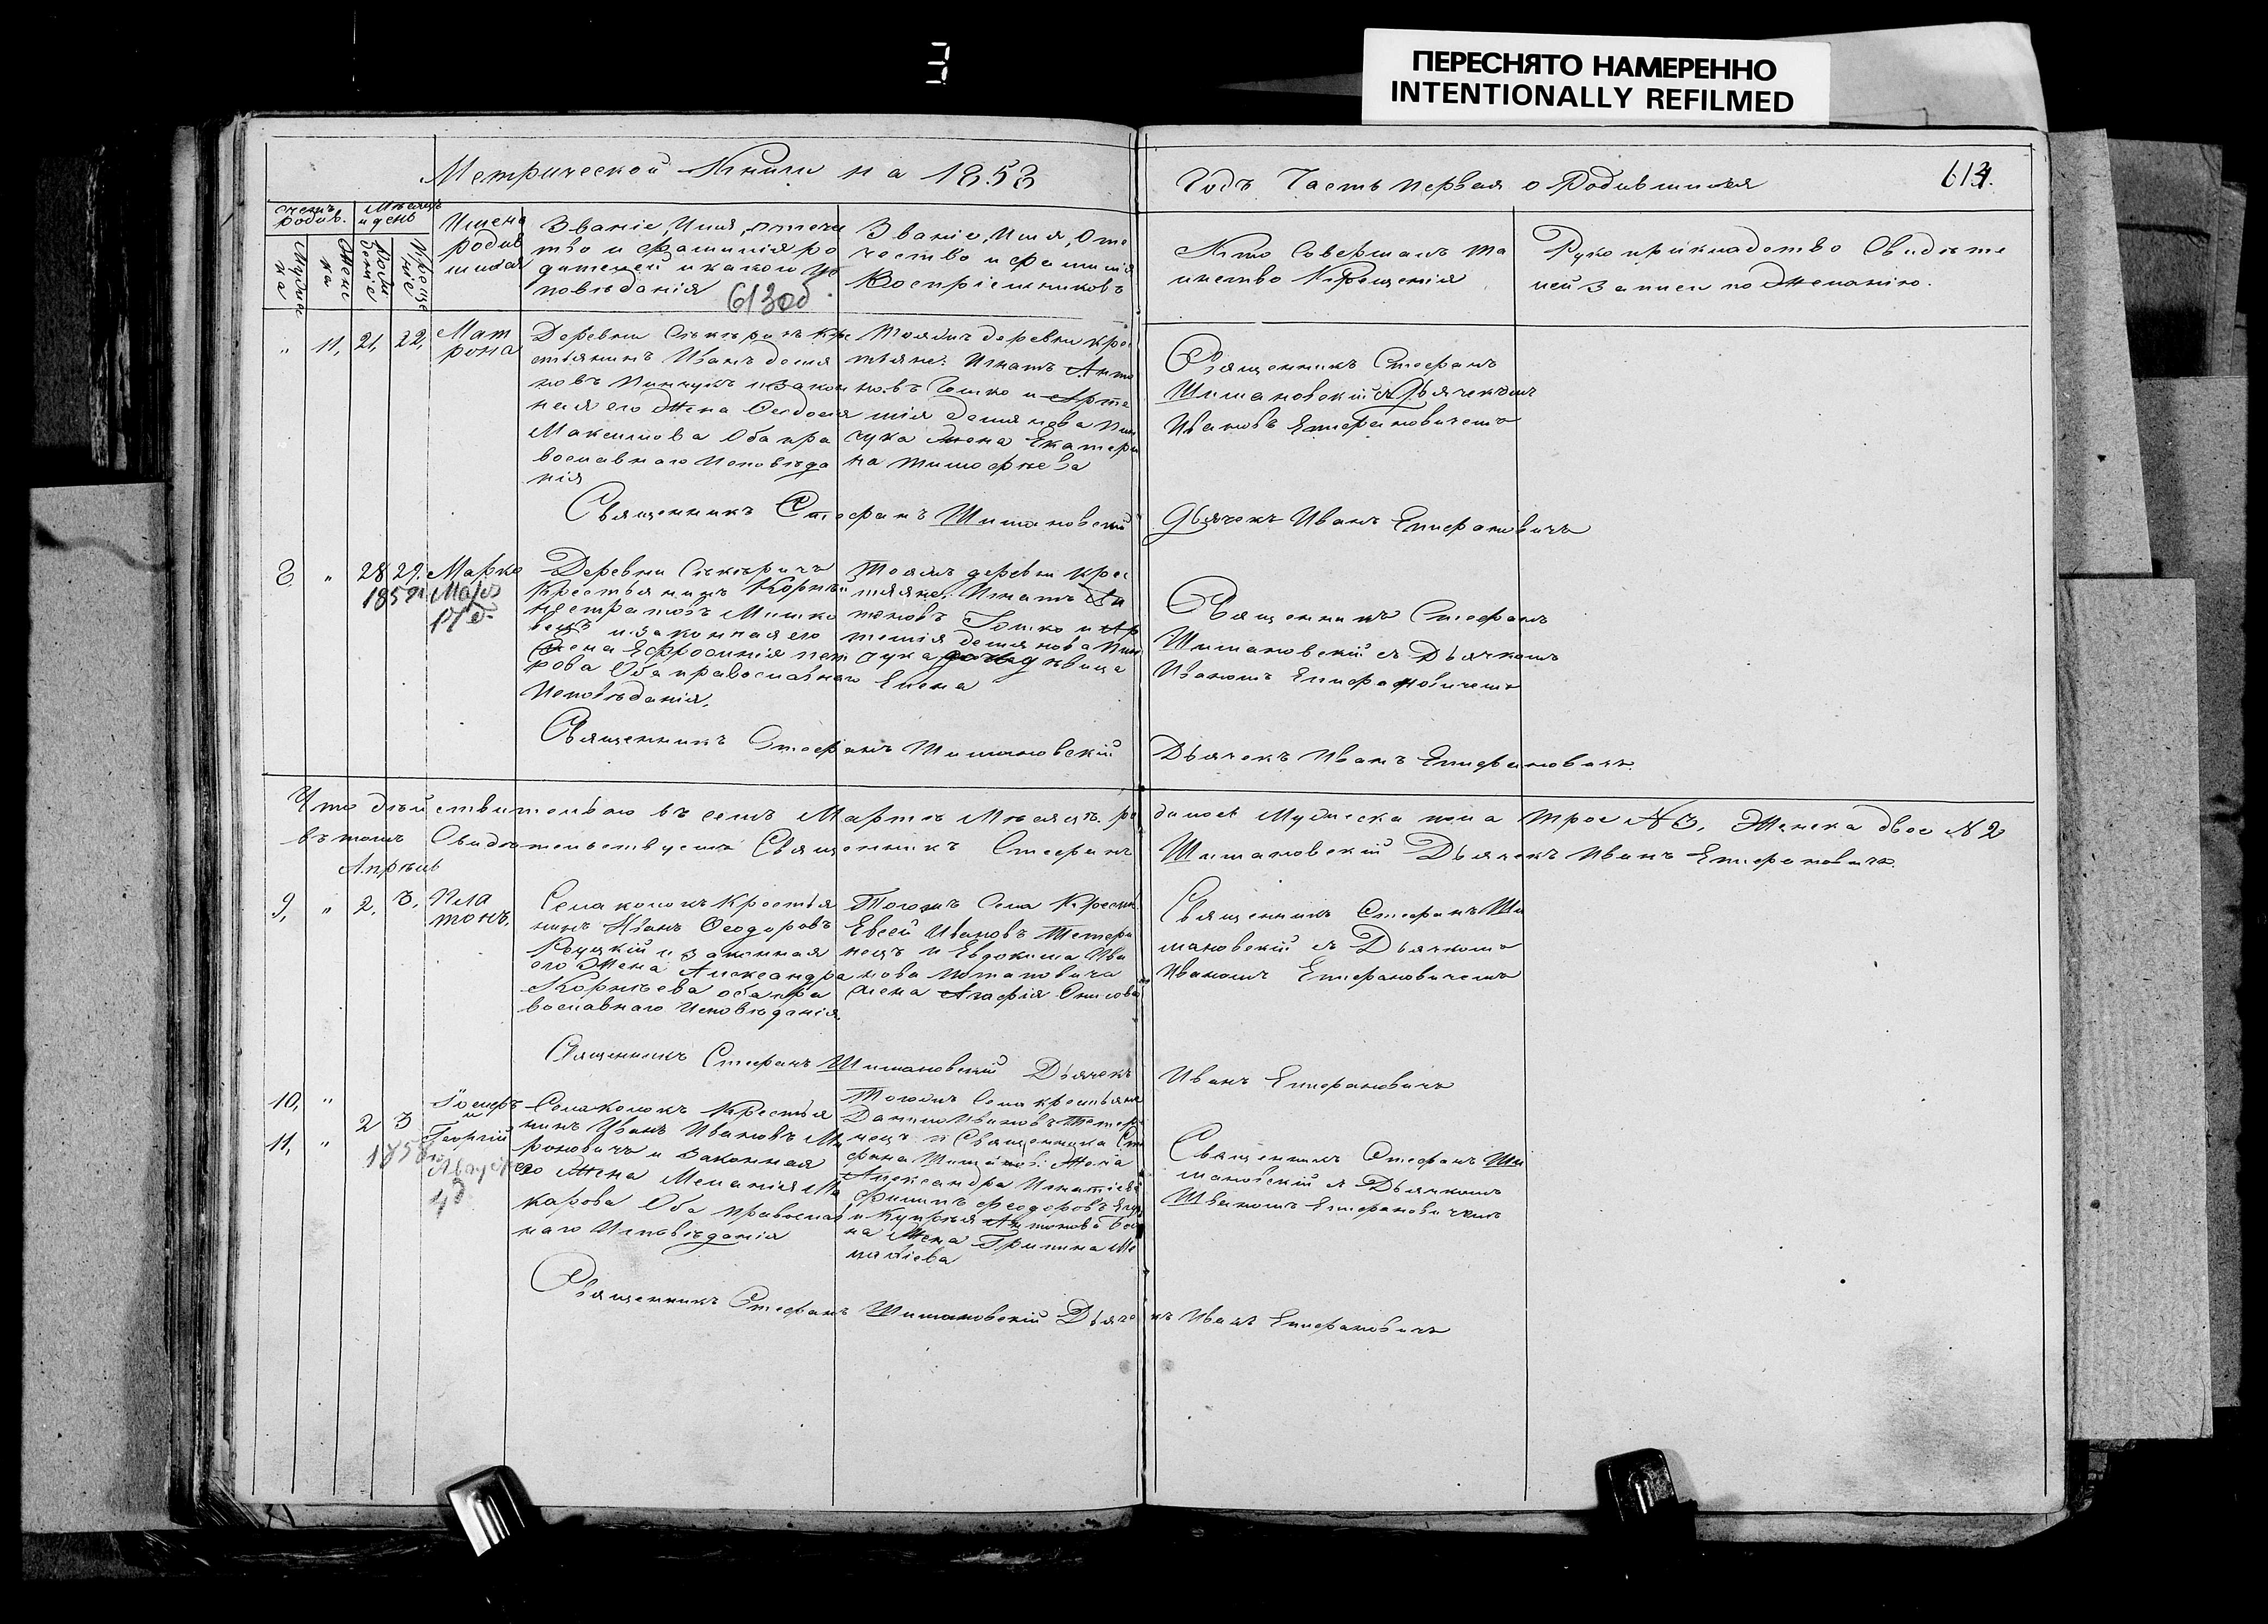 ПЕРЕСНЯТО НАМЕРЕННО
INTENTIONALLY REFILMED
Метрической Книги на 1858
Годъ Часть первая о Родившихся
614.
счетъ родив.
Мѣсяцъ и день
Имена родив шихся
Званіе, Имя, отече
тво и Фамилія ро
дителей и какого Ис
повѣданія
613об
Званіе, Имя, Оте
чество и фамилія
Воспріемниковъ
Кто Совершалъ та
инство Крещенія
Рукоприкладство Свидѣте
лей записи по Желанію.
" 11, 21, 22, Мат
рона
Деревни Сѣкѣричъ Кре
стьянинъ Иванъ Демя
новъ Пинчукъ и закон
ная его Жена Феодосія
Максимова Оба пра
вославнаго Исповѣда
нія
Тояжъ деревни кре
стьяне: Игнатъ Анто
новъ Гошко и Арте
мія Демянова Пин
чука жена Екатери
на Тимофѣева
Священникъ Стефанъ
Шимановскій съ Дьячкомъ
Иваномъ Епифановичемъ
Священникъ Стефанъ Шимановскій
Дьячекъ Иванъ Епифановичъ
8 " 28 29. Марко
Деревни Сѣкѣричъ
Крестьянинъ Корнѣй
Кѣстратовъ Мишко
вецъ и законная его
Жена Ефросинія пет
рова Оба православнаго
Исповѣданія.
Тояжъ деревни Крес
тьяне: Игнатъ Ан
тоновъ Гошко и Ар
темія Демянова Пин
чука дѣвица
Елена
Священникъ Стефанъ
Шимановскій съ Дьячкомъ
Иваномъ Епифановичемъ
Священникъ Стефанъ Шимановскій
Дьячекъ Иванъ Епифановичъ.
Что дѣйствительно въ семъ Мартѣ Мѣсяцѣ ро
дилось Мужеска пола трое №3, Женска двое №2
въ томъ Свидѣтельствуемъ Священникъ Стефанъ
Шимановскій Дьячекъ Иванъ Епифановичъ
Апрѣль
9, " 2, 3, Пла
тонъ,
Села колокъ Крестья
нинъ Иванъ Феодоровъ
Руцкій и законная
его Жена Александра
Корнѣева оба пра
вославнаго Исповѣданія.
Тогожъ Села Крестья
Евсей Ивановъ Тетери
нецъ и Евдокима Ива
нова Потаповича
жена Агафія Осипова
Священникъ Стефанъ Ши
мановскій съ Дьячкомъ
Иваномъ Епифановичемъ
Священникъ Стефанъ Шимановскій Дьячекъ
Иванъ Епифановичъ
10, "
11, " 2 3
и
Георгій
Села колокъ Крестья
нинъ Иванъ Ивановъ Ми
роновичъ и Законная
его Жена Меланія Ма
карова Оба Православ
наго Исповѣданія
Тогожъ Села крестьяне
Данило Ивановъ Тетери
нецъ и Священника Сте
фана Шиманов: Жена
Александра Игнатіева
Филипъ Феодоровъ
и Купрѣя Антонова
на Жена
Священникъ Стефанъ Ши
мановскій съ Дьячкомъ
Иваномъ Епифановичемъ
Священникъ Стефанъ Шимановскій Дьяче
къ Иванъ Епифановичъ